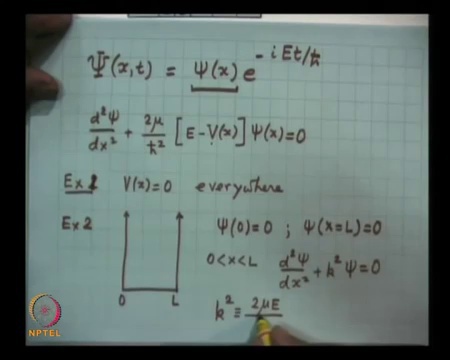 Ψ(x,t) = ψ(x) e^{-iEt/ħ}
d²ψ/dx² + 2μ/ħ² [E-V(x)] ψ(x)=0
Ex 1 V(x)=0 everywhere
Ex 2 ψ(0)=0 ; ψ(x=L)=0
0<x<L d²ψ/dx² + k²ψ=0
0 L
k² ≡ 2μE
NPTEL